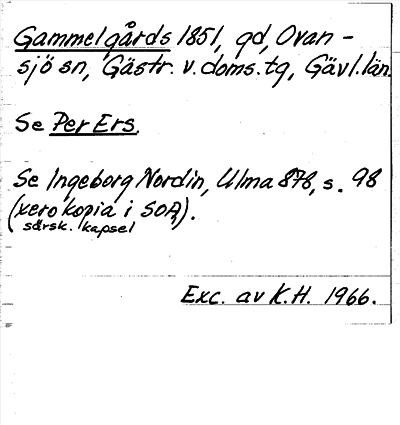 Gammelgårds 1851, gd, Ovan-
sjö sn, Gästr. v. doms. tg, Gävl. län.
Se Per Ers.
Se Ingeborg Nordin, Ulma 878, s. 98
(xerokopia i SOA).
särsk. kapsel
Exc. av K.H. 1966.